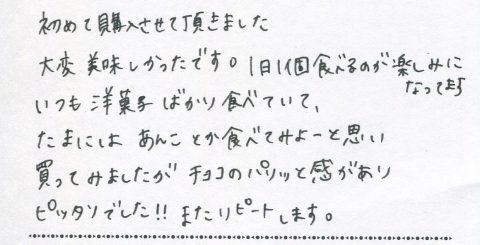 初めて購入させて頂きました
大変美味しかったです。1日1個食べるのが楽しみに
なってます
いつも洋菓子ばかり食べていて、
たまにはあんことか食べてみよーと思い
買ってみましたがチョコのパリッと感があり
ピッタリでした!!またリピートします。